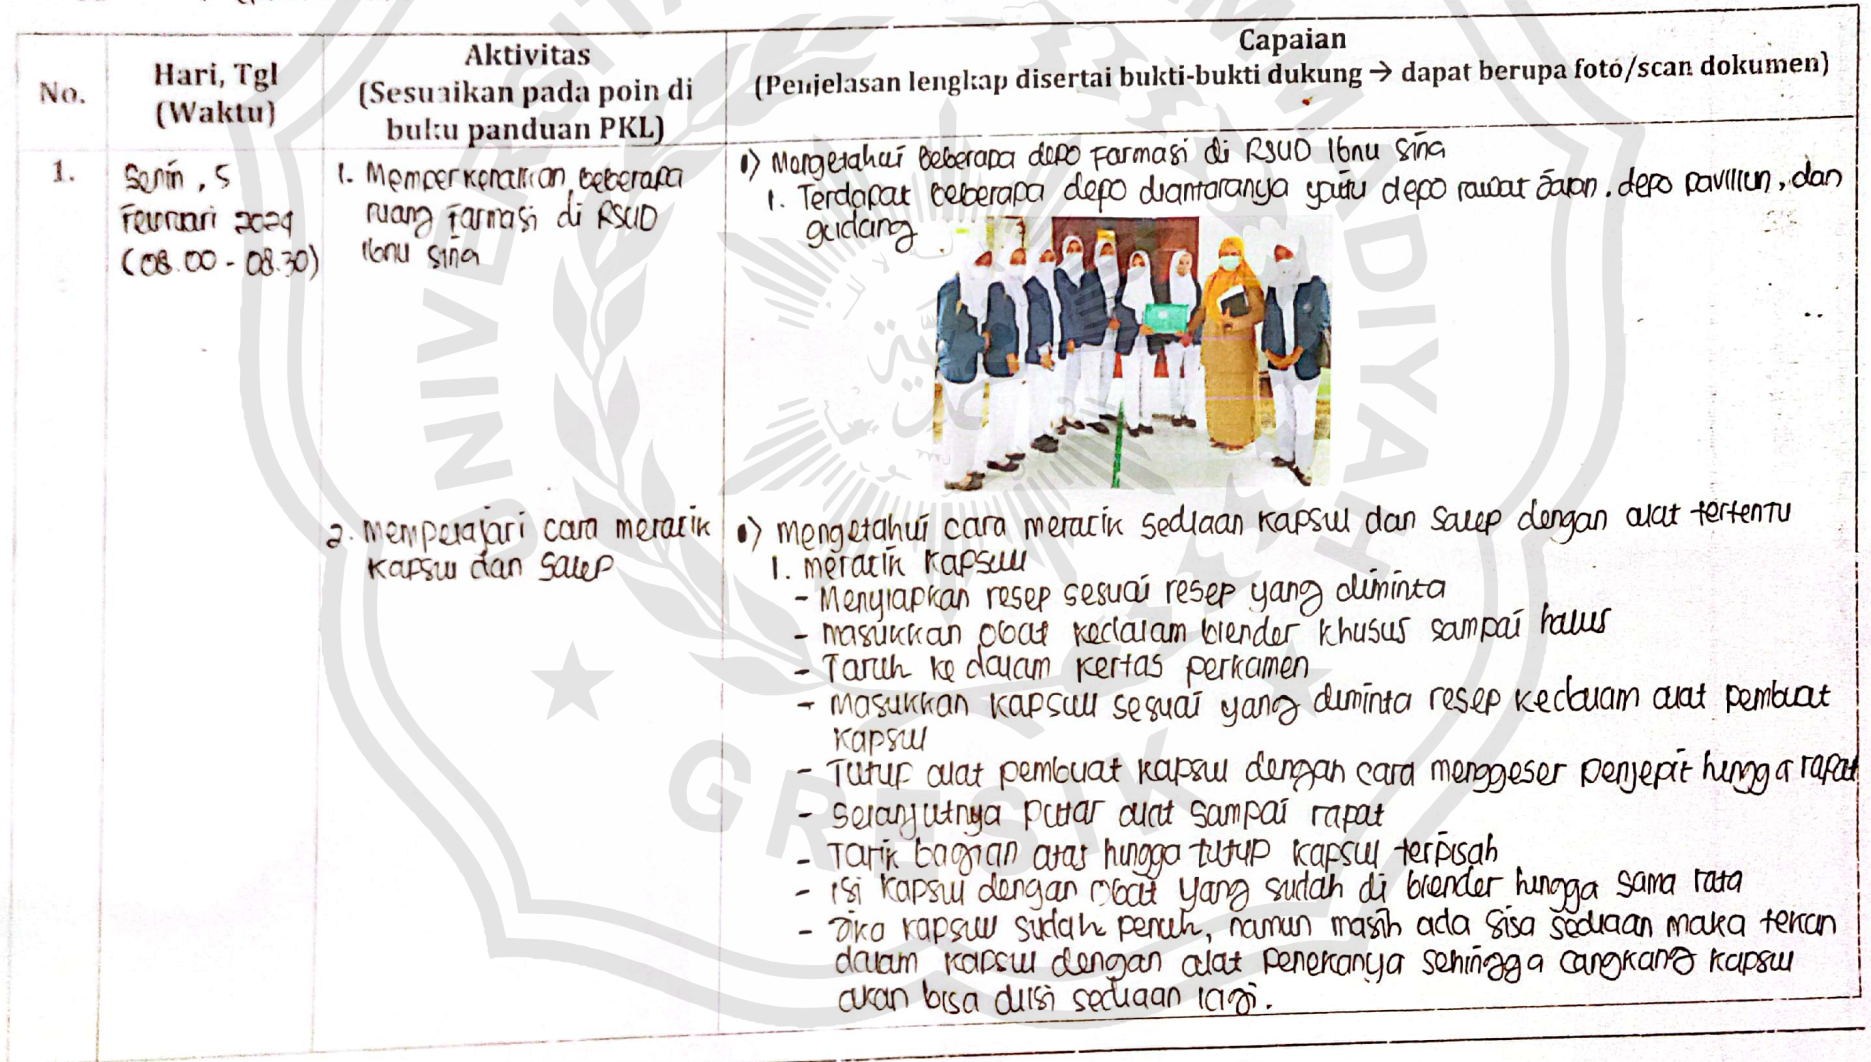 No.
Hari, Tgl
(Waktu)
Aktivitas
(Sesuaikan pada poin di
buku panduan PKL)
Capaian
(Penjelasan lengkap disertai bukti-bukti dukung → dapat berupa foto/scan dokumen)
1.
Senin, 5
Februari 2024
(08.00 - 08.30)
1. Memperkenalkan beberapa
ruang Farmasi di RSUD
Ibnu Sina
•) Mengetahui beberapa depo Farmasi di RSUD Ibnu Sina
1. Terdapat beberapa depo diantaranya yaitu depo rawat jalan, depo paviliun, dan
gudang
2. Mempelajari cara meracik
kapsul dan salep
•) Mengetahui cara meracik sediaan kapsul dan salep dengan alat tertentu
1. meracik kapsul
- Menyiapkan resep sesuai resep yang diminta
- masukkan obat kedalam blender khusus sampai halus
- Taruh ke dalam kertas perkamen
- masukkan kapsul sesuai yang diminta resep kedalam alat pembuat
kapsul
- Tutup alat pembuat kapsul dengan cara menggeser penjepit hingga rapat
- Selanjutnya putar alat sampai rapat
- Tarik bagian atas hingga tutup kapsul terpisah
- isi kapsul dengan obat yang sudah di blender hingga sama rata
- Jika kapsul sudah penuh, namun masih ada sisa sediaan maka tekan
dalam kapsul dengan alat penekanya sehingga cangkang kapsul
akan bisa diisi sediaan lagi.
UNIVERSITAS MUHAMMADIYAH
GRESIK